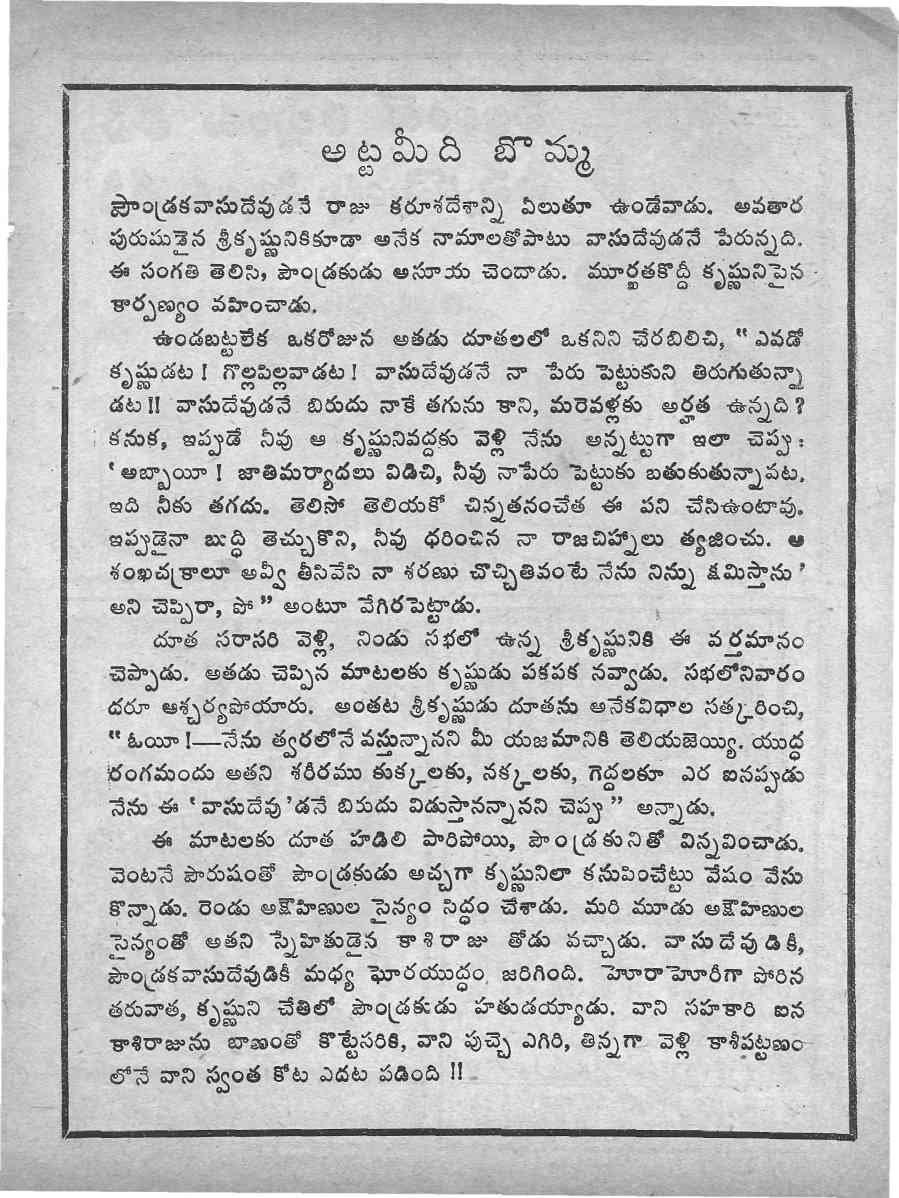 అట్టమీది బొమ్మ
పౌండ్రకవాసుదేవుడనే రాజు కరూశదేశాన్ని ఏలుతూ ఉండేవాడు. అవతార
పురుషుడైన శ్రీకృష్ణునికికూడా అనేక నామాలతోపాటు వాసుదేవుడనే పేరున్నది.
ఈ సంగతి తెలిసి, పౌండ్రకుడు అసూయ చెందాడు. మూర్ఖతకొద్దీ కృష్ణునిపైన
కార్పణ్యం వహించాడు.
ఉండబట్టలేక ఒకరోజున అతడు దూతలలో ఒకనిని చేరబిలిచి, “ ఎవడో
కృష్ణుడట ! గొల్లపిల్లవాడట ! వాసుదేవుడనే నా పేరు పెట్టుకుని తిరుగుతున్నా
డట !! వాసుదేవుడనే బిరుదు నాకే తగును కాని, మరెవళ్లకు అర్హత ఉన్నది ?
కనుక, ఇప్పుడే నీవు ఆ కృష్ణునివద్దకు వెళ్లి నేను అన్నట్టుగా ఇలా చెప్పు :
‘ అబ్బాయీ ! జాతిమర్యాదలు విడిచి, నీవు నాపేరు పెట్టుకు బతుకుతున్నావట.
ఇది నీకు తగదు. తెలిసో తెలియకో చిన్నతనంచేత ఈ పని చేసిఉంటావు.
ఇప్పుడైనా బుద్ధి తెచ్చుకొని, నీవు ధరించిన నా రాజచిహ్నాలు త్యజించు. ఆ
శంఖచక్రాలూ అవ్వీ తీసివేసి నా శరణు చొచ్చితివంటే నేను నిన్ను క్షమిస్తాను ’
అని చెప్పిరా, పో ” అంటూ వేగిరపెట్టాడు.
దూత సరాసరి వెళ్లి, నిండు సభలో ఉన్న శ్రీకృష్ణునికి ఈ వర్తమానం
చెప్పాడు. అతడు చెప్పిన మాటలకు కృష్ణుడు పకపక నవ్వాడు. సభలోనివారం
దరూ ఆశ్చర్యపోయారు. అంతట శ్రీకృష్ణుడు దూతను అనేకవిధాల సత్కరించి,
“ ఓయీ !—నేను త్వరలోనే వస్తున్నానని మీ యజమానికి తెలియజెయ్యి. యుద్ధ
రంగమందు అతని శరీరము కుక్కలకు, నక్కలకు, గెద్దలకూ ఎర ఐనప్పుడు
నేను ఈ ‘ వాసుదేవు’డనే బిరుదు విడుస్తానన్నానని చెప్పు ” అన్నాడు.
ఈ మాటలకు దూత హడిలి పారిపోయి, పౌండ్రకునితో విన్నవించాడు.
వెంటనే పౌరుషంతో పౌండ్రకుడు అచ్చగా కృష్ణునిలా కనుపించేట్టు వేషం వేసు
కొన్నాడు. రెండు అక్షౌహిణుల సైన్యం సిద్ధం చేశాడు. మరి మూడు అక్షౌహిణుల
సైన్యంతో అతని స్నేహితుడైన కాశిరాజు తోడు వచ్చాడు. వాసుదేవుడికీ,
పౌండ్రకవాసుదేవుడికీ మధ్య ఘోరయుద్ధం జరిగింది. హెూరాహెూరీగా పోరిన
తరువాత, కృష్ణుని చేతిలో పౌండ్రకుడు హతుడయ్యాడు. వాని సహకారి ఐన
కాశిరాజును బాణంతో కొట్టేసరికి, వాని పుచ్చె ఎగిరి, తిన్నగా వెళ్లి కాశీపట్టణం
లోనే వాని స్వంత కోట ఎదట పడింది !!